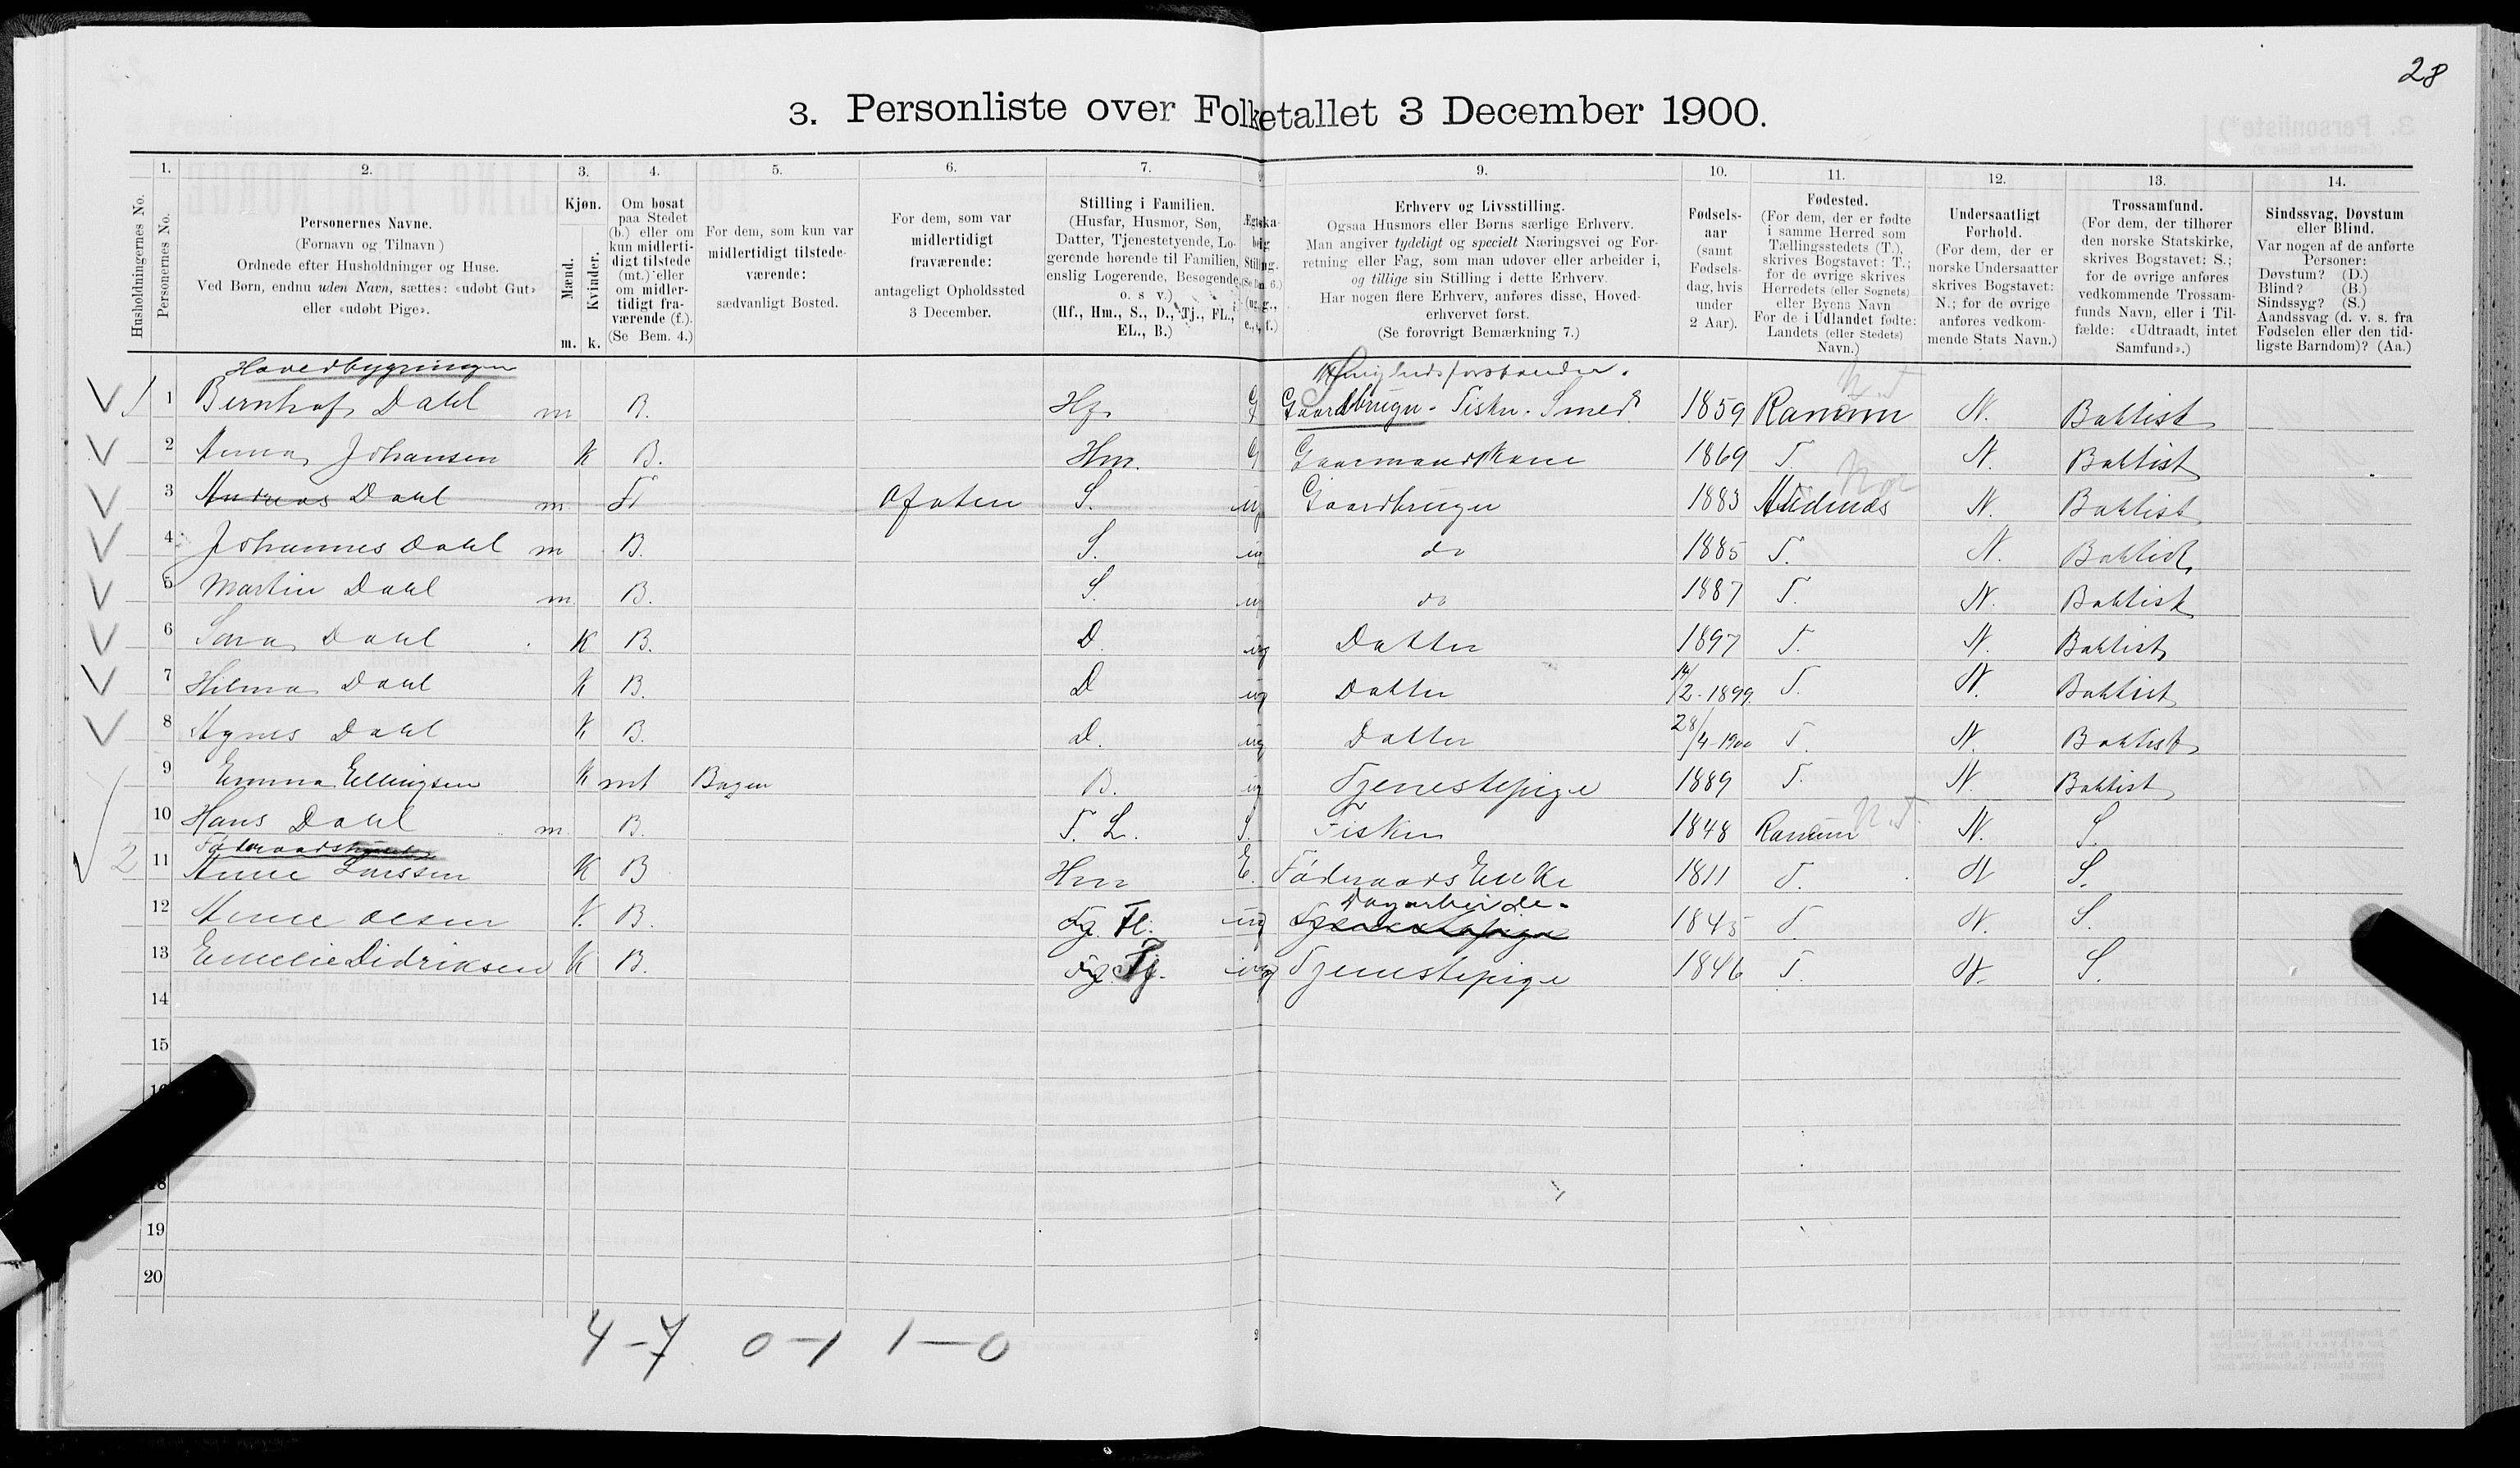 28
3. Personliste over Folketallet 3 December 1900.
1. 2. 3. 4. 5. 6. 7. 9. 10. 11. 12. 13. 14.
Husholdningernes No.
Personernes No.
Personernes Navne.
(Fornavn og Tilnavn)
Ordnede efter Husholdninger og Huse.
Ved Børn, endnu uden Navn, sættes: «udøbt Gut»
eller «udøbt Pige».
Kjøn.
Mænd.
Kvinder.
m. k.
Om bosat
paa Stedet
(b.) eller om
kun midlerti-
digt tilstede
(mt.) eller
om midler-
tidigt fra-
værende (f.).
(Se Bem. 4.)
For dem, som kun var
midlertidigt tilstede-
værende:
sædvanligt Bosted.
For dem, som var
midlertidigt
fraværende:
antageligt Opholdssted
3 December.
Stilling i Familien.
(Husfar, Husmor, Søn,
Datter, Tjenestetyende, Lo-
gerende hørende til Familien,
enslig Logerende, Besøgende
o. s v.)
(Hf., Hm., S., D., Tj., FL.,
EL., B.)
Erhverv og Livsstilling.
Ogsaa Husmors eller Børns særlige Erhverv.
Man angiver tydeligt og specielt Næringsvei og For-
retning eller Fag, som man udøver eller arbeider i,
og tillige sin Stilling i dette Erhverv.
Har nogen flere Erhverv, anføres disse, Hoved-
erhvervet først.
(Se forøvrigt Bemærkning 7.)
Fødsels-
aar
(samt
Fødsels-
dag, hvis
under
2 Aar).
Fødested.
(For dem, der er fødte
i samme Herred som
Tællingsstedets (T.),
skrives Bogstavet: T.;
for de øvrige skrives
Herredets (eller Sognets)
eller Byens Navn
For de i Udlandet fødte:
Landets (eller Stedets)
Navn.)
Undersaatligt
Forhold.
(For dem, der er
norske Undersaatter
skrives Bogstavet:
N.; for de øvrige
anføres vedkom-
mende Stats Navn.)
Trossamfund.
(For dem, der tilhører
den norske Statskirke,
skrives Bogstavet: S.;
for de øvrige anføres
vedkommende Trossam-
funds Navn, eller i Til-
fælde: «Udtraadt, intet
Samfund».)
Sindssvag, Døvstum
eller Blind.
Var nogen af de anførte
Personer:
Døvstum? (D.)
Blind? (B.)
Sindssyg? (S.)
Aandssvag (d. v. s. fra
Fødselen eller den tid-
ligste Barndom)? (Aa.)
Hovedbygningen
1 Bernhof Dahl m B. Hf. G Gaardbruger - Fisker - Smed 1859 Ranum N. Babtist
2 Anna Johansen K B. Hm. G Gaarmandskone 1869 T. N. Babtist
3 Andreas Dahl m F Ofoten S. ug Gaardbruger 1883 N. Babtist
4 Johannes Dahl m B. S. ug do 1885 T. N. Babtist
5 Martin Dahl m B. S. ug do 1887 T. N. Babtist
6 Sara Dahl K B. D. ug Datter 1897 T. N. Babtist
7 Hilma Dahl K B. D ug Datter 14/2-1899 T. N. Babtist
8 Agnes Dahl K B. D. ug Datter 28/4-1900 T. N. Babtist
9 Emma Ellingsen K mt Bogen B. ug Tjenestepige 1889 T. N. Babtist
10 Hans Dahl m B. F. L. S. Fisker 1848 Ranum N. S.
2 11 Anne Larssen K B Hm E. Føderaads Enke 1811 T. N S.
Dagarbeide
12 Anne Olsen K. B. Tj. Fl. ug Tjenestepige 1845 T. N. S.
13 Emelie Didriksen K B. Tj. Tj. ug Tjenestepige 1846 T. N. S.
14
15
18
19
20
4-7 0-1 1-0